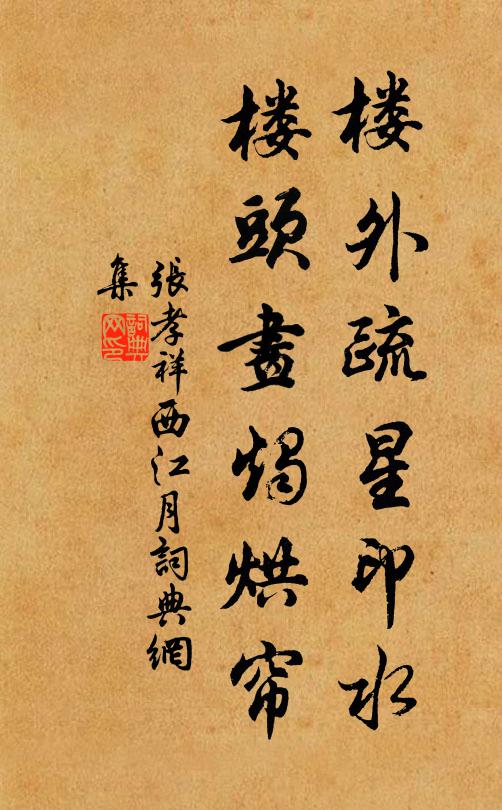 楼外疏星印水
楼頭畫燭烘帘
張孝祥西江月詞典網
集
詞典
网印